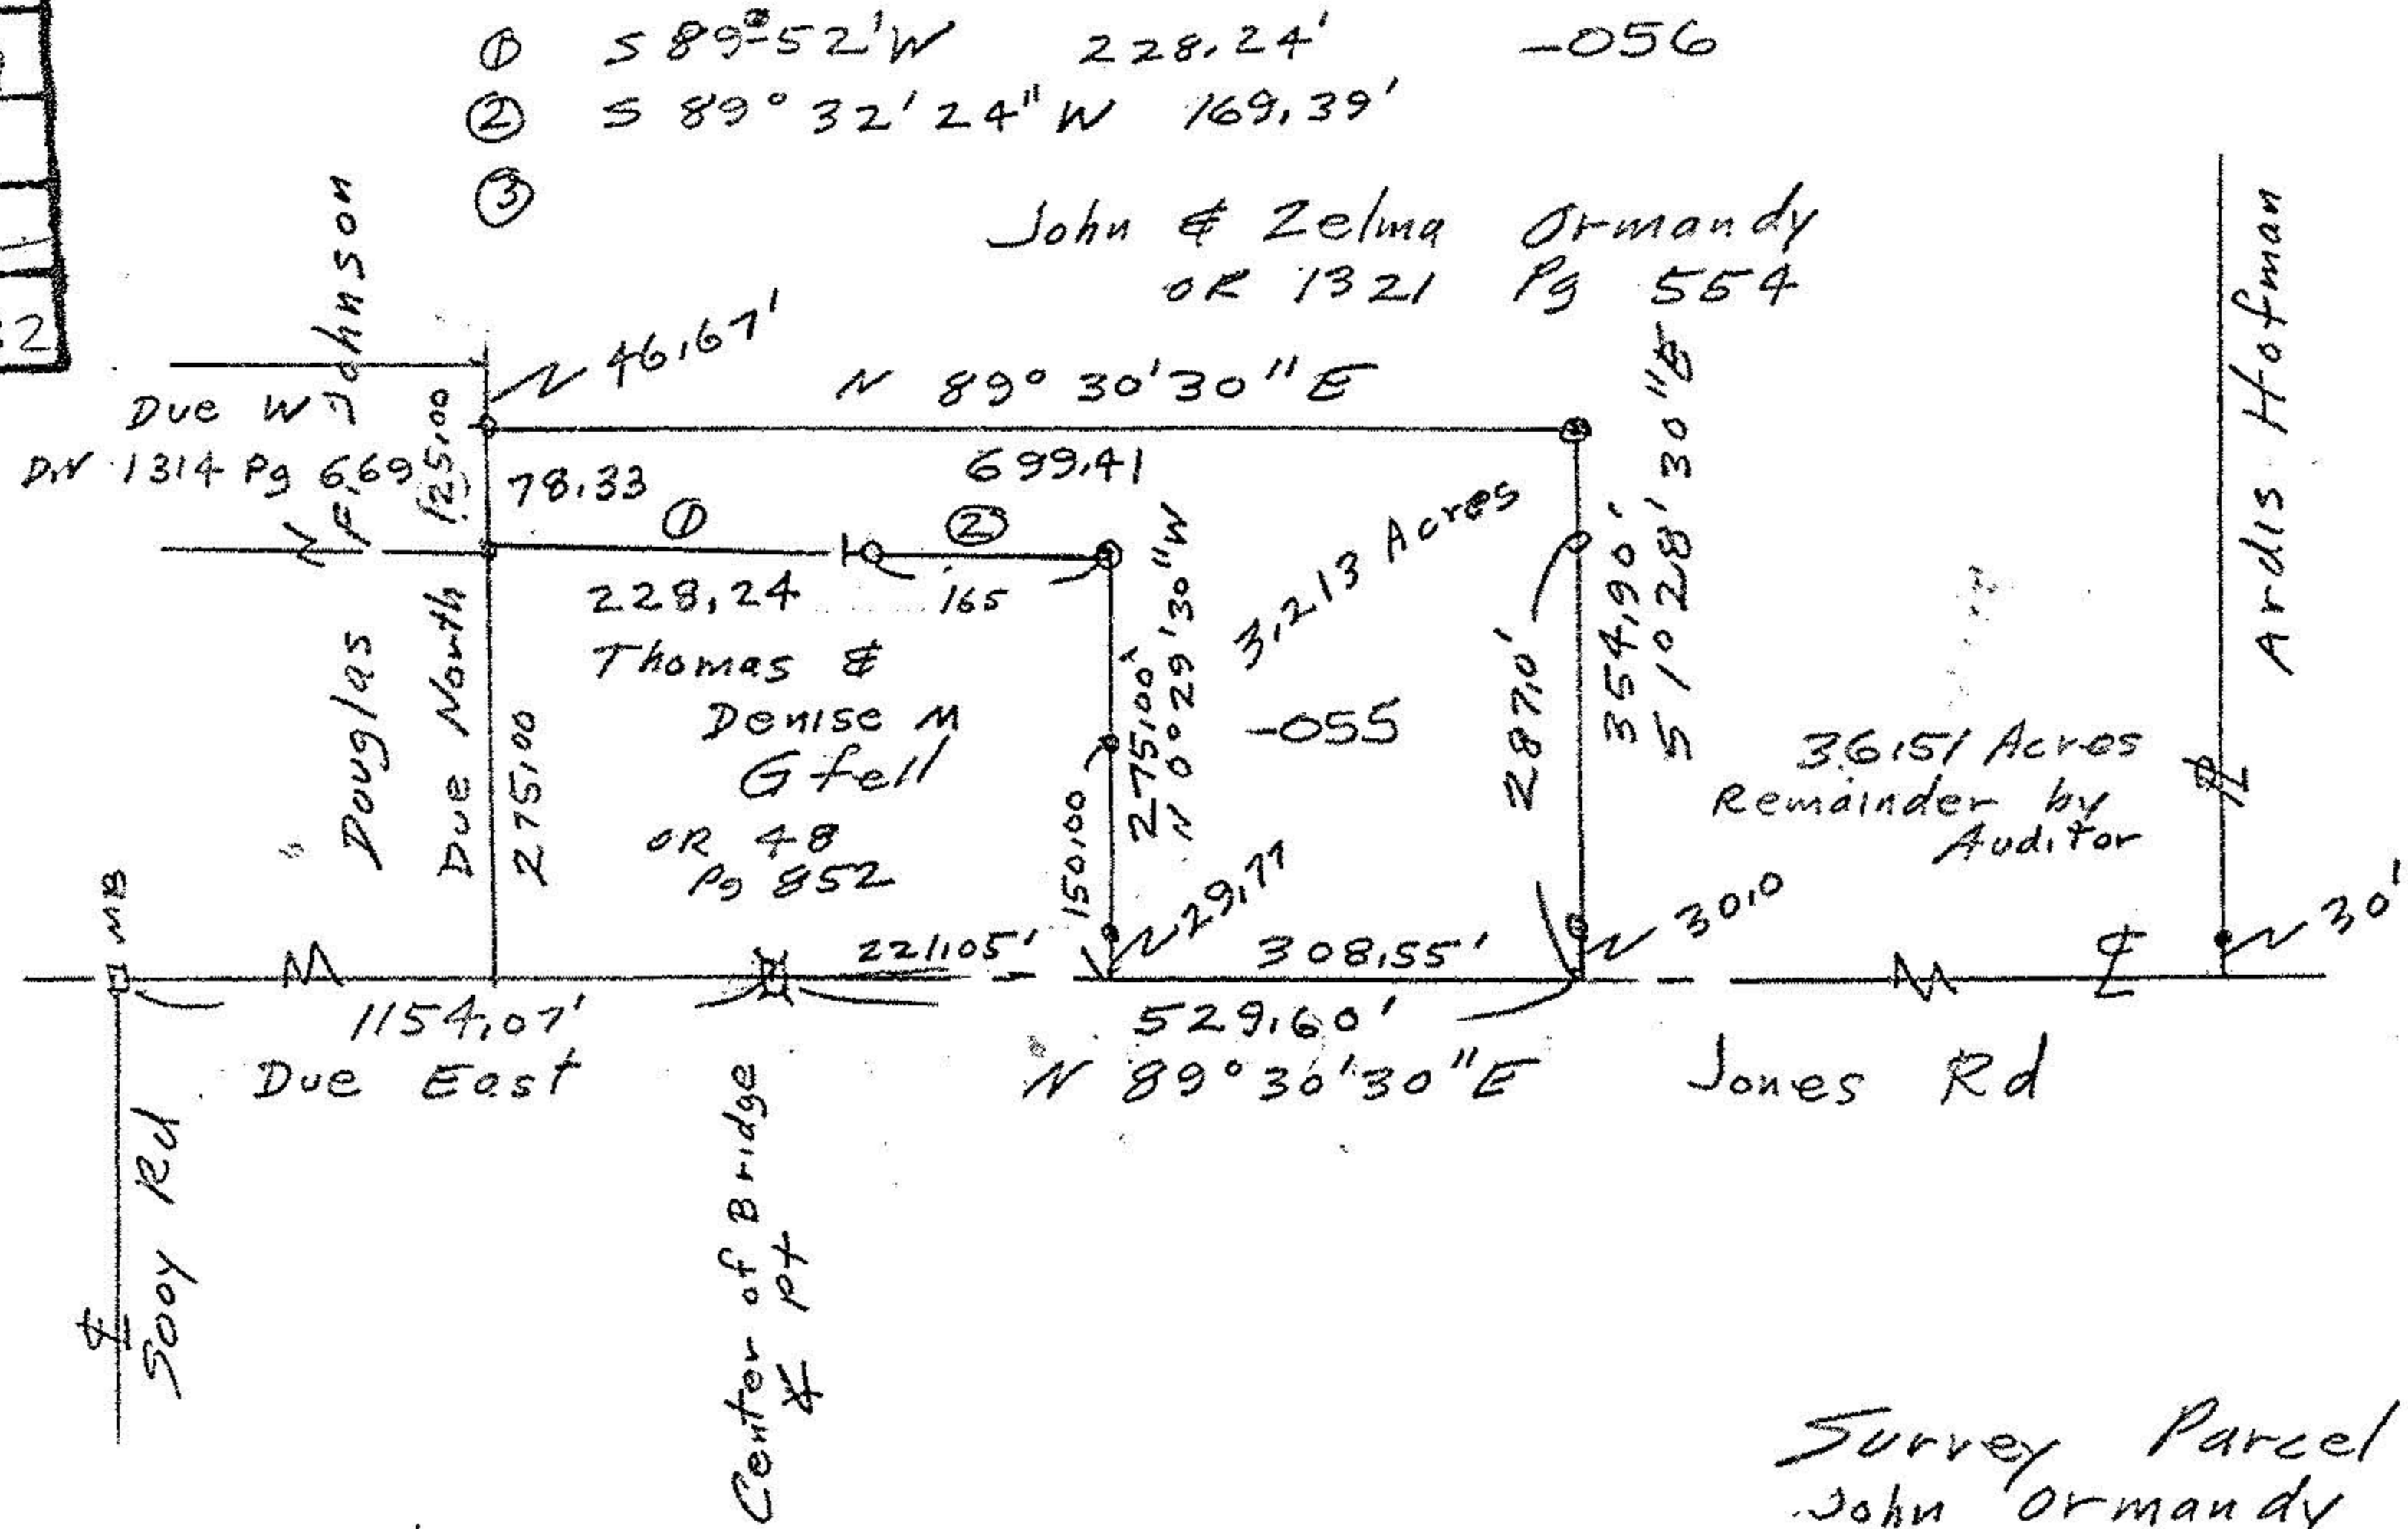 ① S 89°52'W 228.24' -056
② S 89° 32' 24" W 169.39'
③
John & Zelma Ormandy
OR 1321 Pg 554
:2
Douglas F. Johnson
Due W
D.V 1314 Pg 669
N 46.67'
N 89° 30' 30" E
699.41
125.00
78.33
① ②
228.24
165
Due North
275.00
Thomas &
Denise M
Gfell
OR 48
Pg 852
150.00
275.00'
N 0° 29' 30" W
3.213 Acres
-055
287.0'
354.90'
S 1° 28' 30" E
36.51 Acres
Remainder by
Auditor
Ardis Hofman
℄
MB
221.05'
N 29.77
308.55'
N 30.0
℄
N 30'
1154.07'
Due East
529.60'
N 89° 30' 30" E
Jones Rd
Sooy Rd
℄
Center of Bridge
Pt
Survey Parcel
John Ormandy